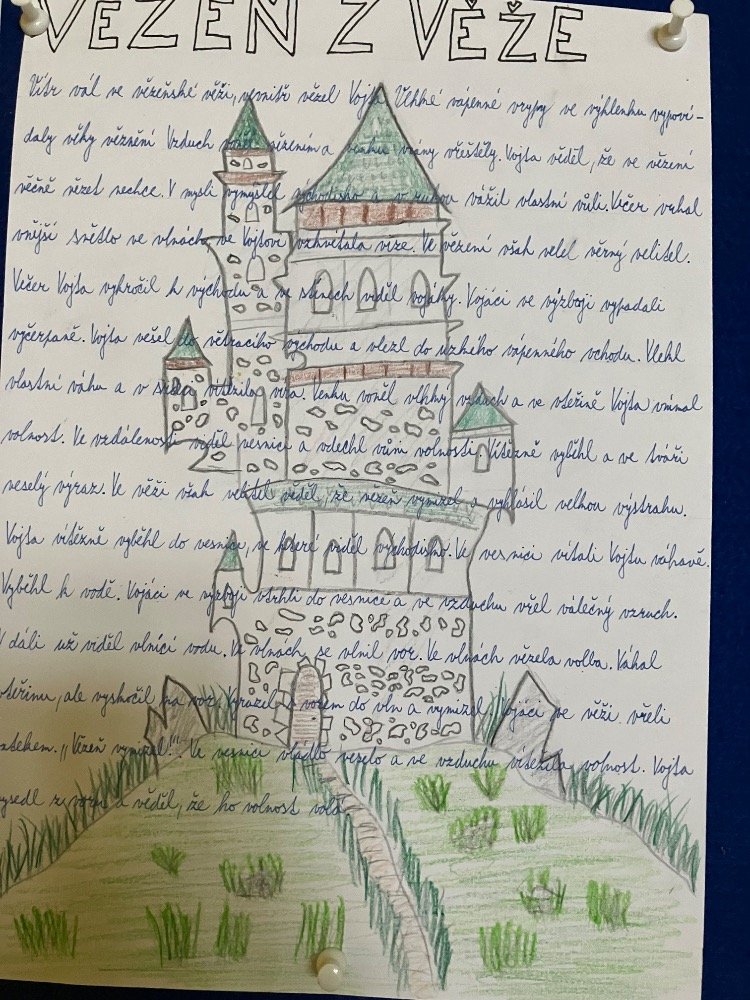 VĚZEŇ Z VĚŽE
Vítr vál ve vězeňské věži, uvnitř vězel Vojta. Vlhké vápenné vrypy ve výklenku vypoví-
daly věky věznění. Vzduch voněl vězením a venku vrány vřeštěly. Vojta věděl, že ve vězení
věčně vězet nechce. V mysli vymýšlel východisko a v rukou vážil vlastní vůli. Večer vrhal
vnější světlo ve vlnách, ve Vojtovi vzkvétala vize. Ve vězení však velel věrný velitel.
Večer Vojta vykročil k východu a ve stínech viděl vojáky. Vojáci ve výzbroji vypadali
vyčerpaně. Vojta vešel do větracího východu a vlezl do úzkého vápenného vchodu. Vlekl
vlastní váhu a v srdci vítězila víra. Venku voněl vlhký vzduch a ve vteřině Vojta vnímal
volnost. Ve vzdálenosti viděl vesnici a vdechl vůni volnosti. Vítězně vyběhl a ve tváři
veselý výraz. Ve věži však velitel věděl, že vězeň vymizel a vyhlásil velkou výstrahu.
Vojta vítězně vyběhl do vesnice, ve které viděl východisko. Ve vesnici vítali Vojtu váhavě.
Vyběhl k vodě. Vojáci ve výzbroji vtrhli do vesnice a ve vzduchu vřel válečný vzruch.
V dáli už viděl vlnící vodu. Ve vlnách se vlnil vor. Ve vlnách vězela volba. Váhal
vteřinu, ale vyskočil na vor. Vyrazil s vorem do vln a vymizel. Vojáci ve věži vřeli
vztekem. "Vězeň vymizel!". Ve vesnici vládlo veselo a ve vzduchu vítězila volnost. Vojta
vysedl z voru a věděl, že ho volnost volá.